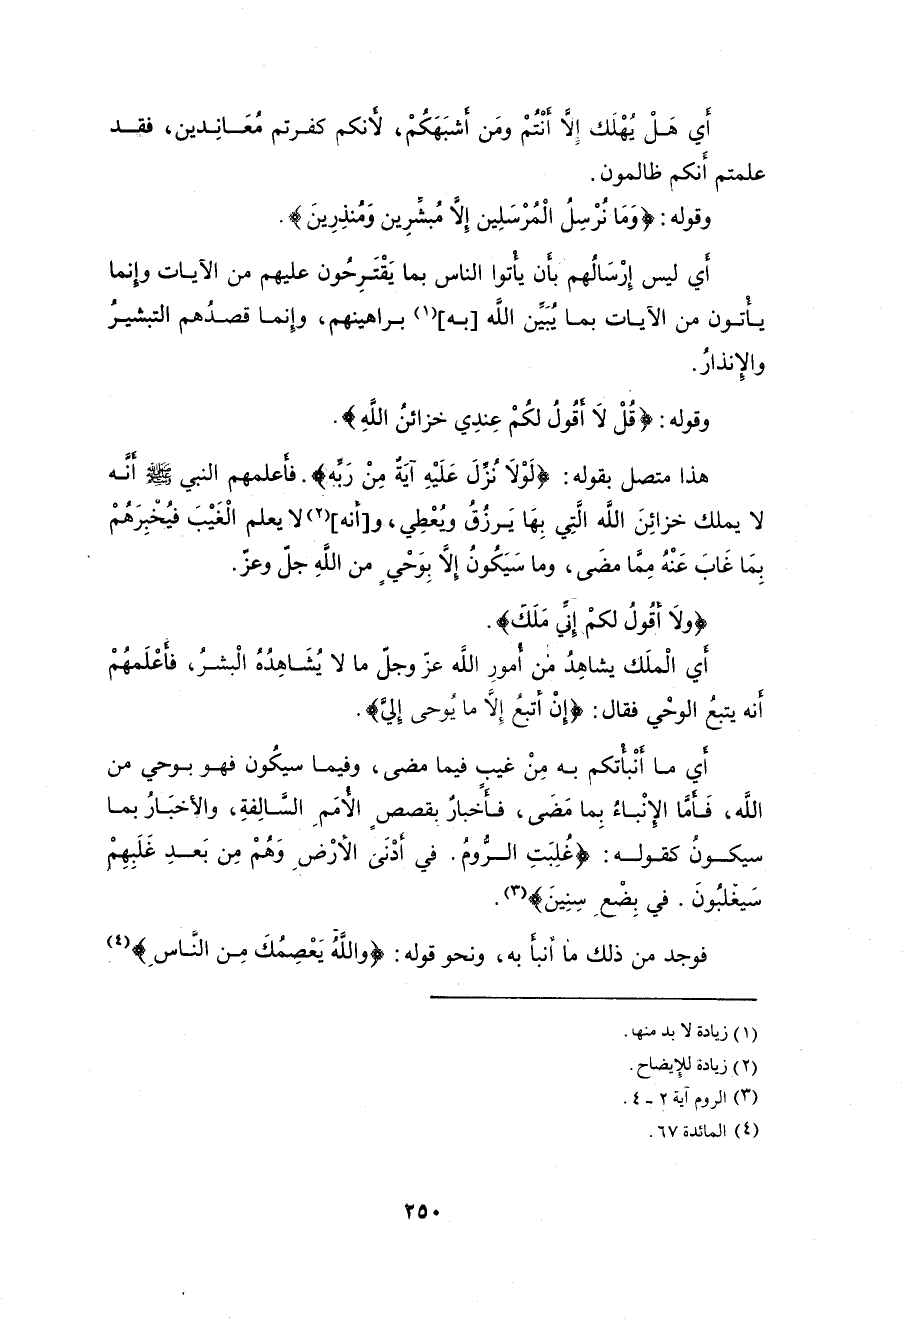 أَي هَلْ يُهْلَك إِلَّا أَنْتُمْ ومَن أَشبَهَكُمْ، لأَنكم كفرتم مُعَانِدين، فقد
علمتم أَنكم ظالمون.
وقوله: ﴿وَمَا نُرْسِلُ الْمُرْسَلِين إِلَّا مُبشِّرِين وَمُنذِرِينَ﴾.
أَي ليس إِرْسَالُهم بأَن يأْتوا الناس بما يَقْتَرِحُون عليهم من الآيات وإنما
يأْتون من الآيات بما يُبَيِّن اللَّه [به](١) براهينهم، وإنما قصدُهم التبشيرُ
والإِنذارُ.
وقوله: ﴿قُلْ لَا أَقُولُ لكُمْ عِندِي خزائنُ اللَّهِ﴾.
هذا متصل بقوله: ﴿لَوْلَا نُزِّلَ عَلَيْهِ آيَةٌ مِنْ رَبِّهِ﴾. فأعلمهم النبي ﷺ أَنَّه
لا يملك خزائِنَ اللَّه الَّتِي بِهَا يَرزُقُ ويُعْطِي، و[أنه](٢) لا يعلم الْغَيْبَ فيُخْبِرَهُمْ
بِمَا غَابَ عَنْهُ مِمَّا مضَى، وما سَيَكُونُ إِلَّا بِوَحْيٍ من اللَّهِ جلّ وعزّ.
﴿ولَا أَقُولُ لكمْ إِنِّي مَلَكٌ﴾.
أَي الْملَك يشاهِدُ من أُمورِ اللَّه عزّ وجلّ ما لا يُشَاهِدُهُ الْبشرُ، فأَعْلَمهُمْ
أَنه يتبعُ الوحْي فقال: ﴿إِنْ أَتبعُ إِلَّا ما يُوحى إِليَّ﴾.
أَي ما أَنْبأْتكم به مِنْ غيبٍ فيما مضى، وفيما سيكون فهو بوحي من
اللَّه، فَأَمَّا الإِنْباءُ بِما مَضَى، فأَخبارٌ بقصصِ الأُمَمِ السَّالِفةِ، والأخبَارُ بما
سيكونُ كقوله: ﴿غُلِبَتِ الرُّومُ. في أَدْنَى الأَرْضِ وَهُمْ مِن بَعدِ غَلَبِهِمْ
سَيَغْلِبُونَ. في بِضْعِ سِنِينَ﴾(٣).
فوجد من ذلك ما أَنبأَ به، ونحو قوله: ﴿واللَّهُ يَعْصِمُكَ مِن النَّاسِ﴾(٤)
(١) زيادة لا بد منها.
(٢) زيادة للإيضاح.
(٣) الروم آية ٢ - ٤.
(٤) المائدة ٦٧.
٢٥٠